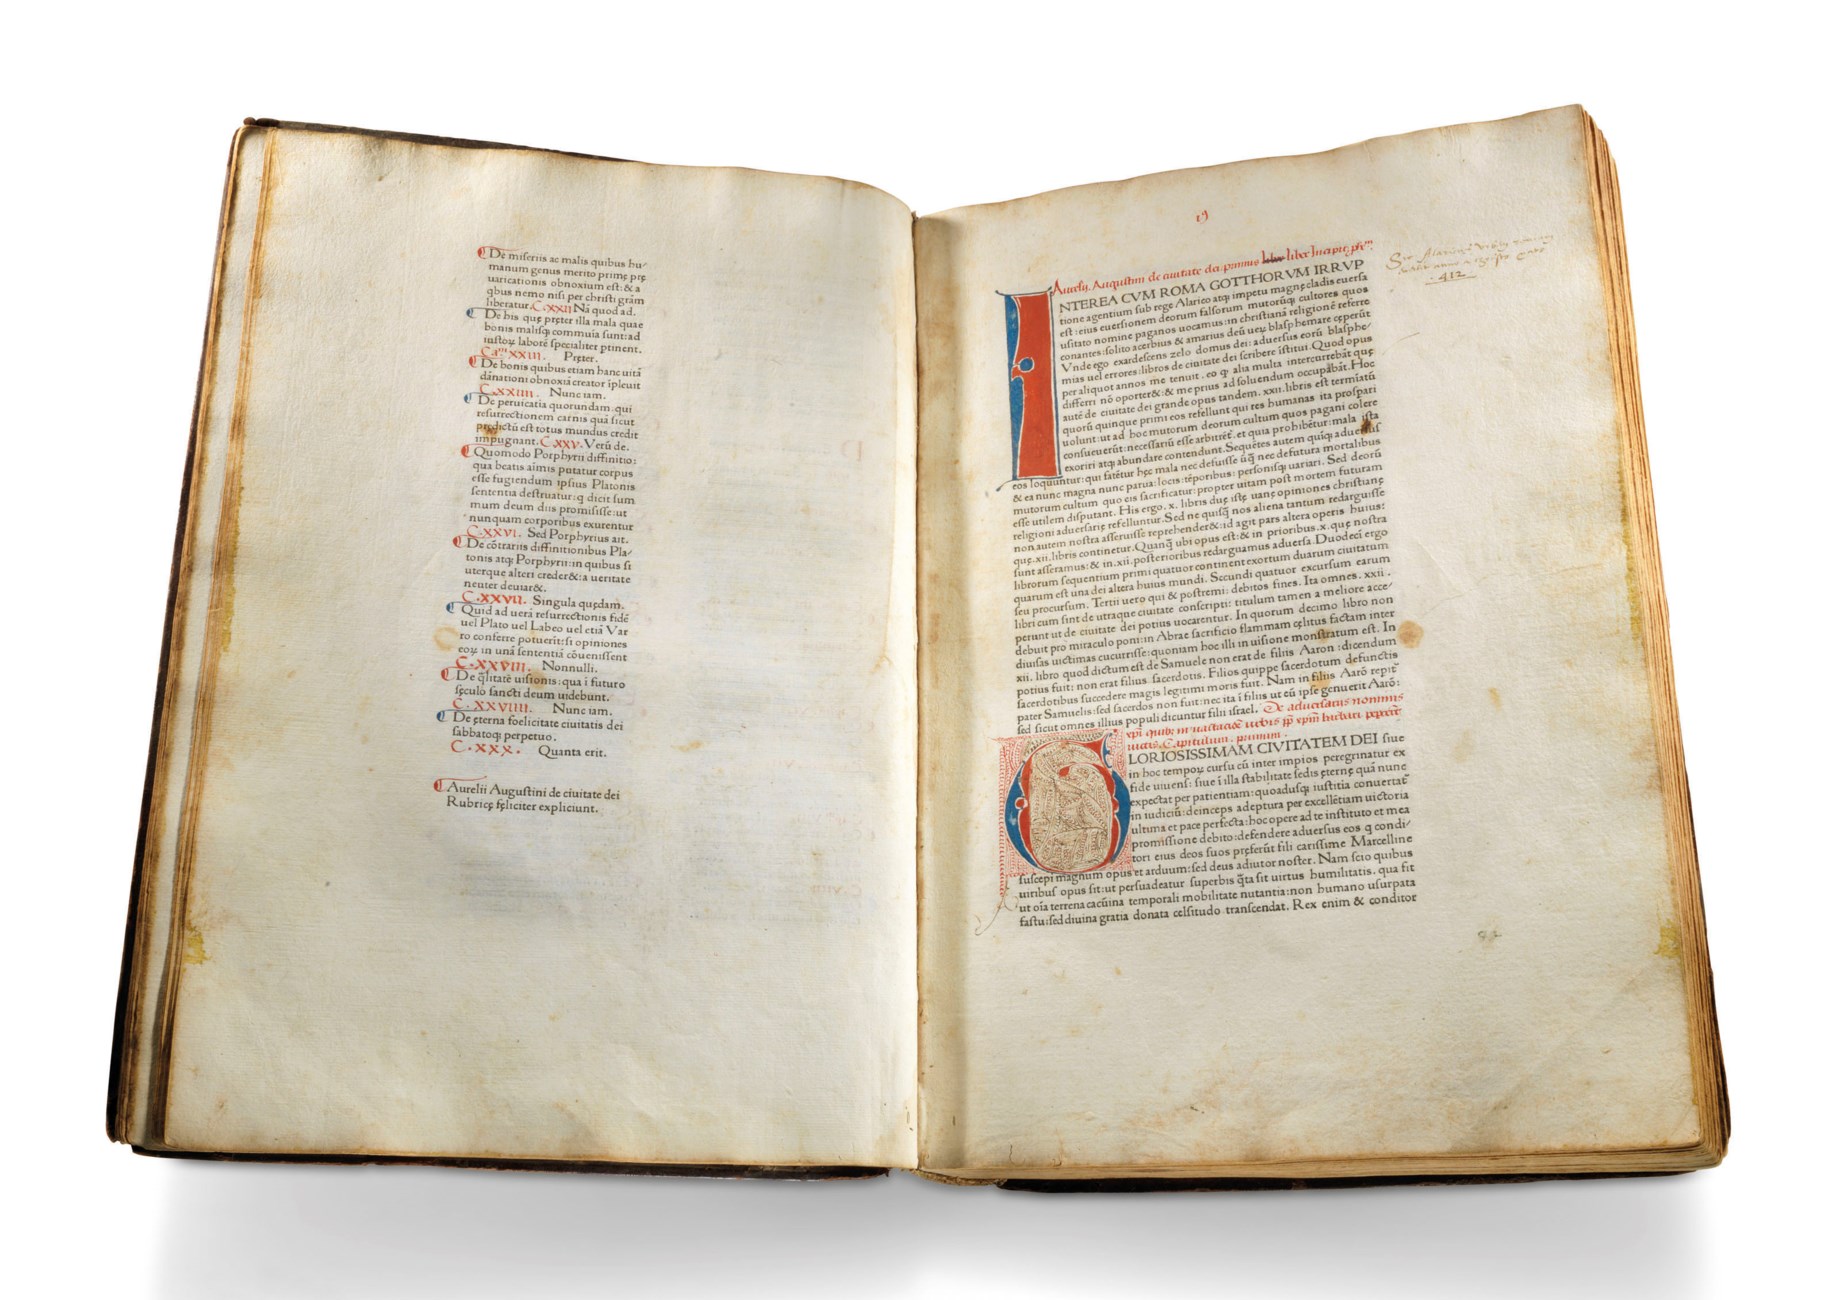 De miseriis ac malis quibus hu/
manum genus merito primę pre
uaricationis obnoxium est: & a
qbus nemo nisi per christi grãm
liberatur. C. XXII Nã quod ad.
De his quę pręter illa mala quae
bonis malisqꝫ communia sunt: ad
iustoꝝ laborē specialiter ptinent.
Ca.m XXIII. Pręter.
De bonis quibus etiam hanc uitã
dãnationi obnoxiã creator ipleuit
C. XXIIII. Nunc iam.
De peruicatia quorundam: qui
resurrectionem carnis quã sicut
predictū est totus mundus credit
impugnant. C. XXV. Verū de.
Quomodo Porphyrii diffinitio:
qua beatis aimis putatur corpus
esse fugiendum ipsius Platonis
sententia destruatur: q dicit sum
mum deum diis promisisse: ut
nunquam corporibus exuerentur
C. XXVI. Sed Porphyrius ait.
De cōtrariis diffinitionibus Pla/
tonis atqꝫ Porphyrii: in quibus si
uterque alteri creder&: a ueritate
neuter deuiar&.
C. XXVII. Singula quędam.
Quid ad uerã resurrectionis fidē
uel Plato uel Labeo uel etiã Var
ro conferre potuerīt: si opiniones
eoꝝ in unã sententiã cōuenissent
C. XXVIII. Nonnulli.
De q̃litate uisionis: qua ī futuro
sęculo sancti deum uidebunt.
C. XXVIIII. Nunc iam.
De ęterna foelicitate ciuitatis dei
sabbatoqꝫ perpetuo.
C. XXX. Quanta erit.
Aurelii Augustini de ciuitate dei
Rubricę fęliciter expliciunt.
19
Aurelij Augustini de ciuitate dei primus liber Incipit
INTEREA CVM ROMA GOTTHORVM IRRVP
tione agentium sub rege Alarico atqꝫ impetu magnę cladis euersa
est: eius euersionem deorum falsorum multorūqꝫ cultores quos
usitato nomine paganos uocamus: in christianã religionē referre
conantes: solito acerbius & amarius deū uerꝫ blasphemare cęperūt
Vnde ego exardescens zelo domus dei: aduersus eorū blasphe/
mias uel errores: libros de ciuitate dei scribere īstitui. Quod opus
per aliquot annos me tenuit. eo q alia multa intercurrebãt quę
differri nō oporter&: & me prius ad soluendum occupãbãt. Hoc
autē de ciuitate dei grande opus tandem. xxii. libris est termīatū
quorū quinque primi eos refellunt qui res humanas ita prospari
uolunt: ut ad hoc mutorum deorum cultum quos pagani colere
consueuerūt: necessariū esse arbitrēt. et quia prohibētur: mala ista
exoriri atqꝫ abundare contendunt. Sequētes autem quīqꝫ aduersus
eos loquuntur: qui fatētur hęc mala nec defuisse ūq̃ nec defutura mortalibus
& ea nunc magna nunc parua: locis: tēporibus: personisqꝫ uariari. Sed deorū
mutorum cultum quo eis sacrificatur: propter uitam post mortem futuram
esse utilem disputant. His ergo. x. libris duę istę uanę opiniones christianę
religioni aduersarię refelluntur. Sed ne quisq̃ nos aliena tantum redarguisse
non autem nostra asseruisse reprehender&: id agit pars altera operis huius:
quę. xii. libris continetur. Quanq̃ ubi opus est: & in prioribus. x. quę nostra
sunt asseramus: & in. xii. posterioribus redarguamus aduersa. Duodecī ergo
librorum sequentium primi quatuor continent exortum duarum ciuitatum
quarum est una dei altera huius mundi. Secundi quatuor excursum earum
seu procursum. Tertii uero qui & postremi: debitos fines. Ita omnes. xxii.
libri cum sint de utraque ciuitate conscripti: titulum tamen a meliore acce/
perunt ut de ciuitate dei potius uocarentur. In quorum decimo libro non
debuit pro miraculo poni: in Abrae sacrificio flammam cęlitus factam inter
diuisas uictimas cucurrisse: quoniam hoc illi in uisione monstratum est. In
xii. libro quod dictum est de Samuele non erat de filiis Aaron: dicendum
potius fuit: non erat filius sacerdotis. Filios quippe sacerdotum defunctis
sacerdotibus succedere magis legitimi moris fuit. Nam in filiis Aarō repit̃
pater Samuelis: sed sacerdos non fuit: nec ita ī filiis ut eū ipse genuerit Aarō:
sed sicut omnes illius populi dicuntur filii israel. De aduersariis nominis
xpi quib; in uastacione urbis
Capitulum. primum.
GLORIOSISSIMAM CIVITATEM DEI siue
in hoc tempoꝝ cursu cū inter impios peregrinatur ex
fide uiuens: siue ī illa stabilitate sedis ęternę quã nunc
expectat per patientiam: quoadusqꝫ iustitia conuertat̃
in iudiciū: deinceps adeptura per excellētiam uictoria
ultima et pace perfecta: hoc opere ad te instituto et mea
promissione debito: defendere aduersus eos q condi/
tori eius deos suos pręferūt fili carissime Marcelline
suscepi magnum opus et arduum: sed deus adiutor noster. Nam scio quibus
uiribus opus sit: ut persuadeatur superbis q̃ta sit uirtus humilitatis. qua fit
ut oīa terrena cacūina temporali mobilitate nutantia: non humano usurpata
fastu: sed diuina gratia donata celsitudo transcendat. Rex enim & conditor
412